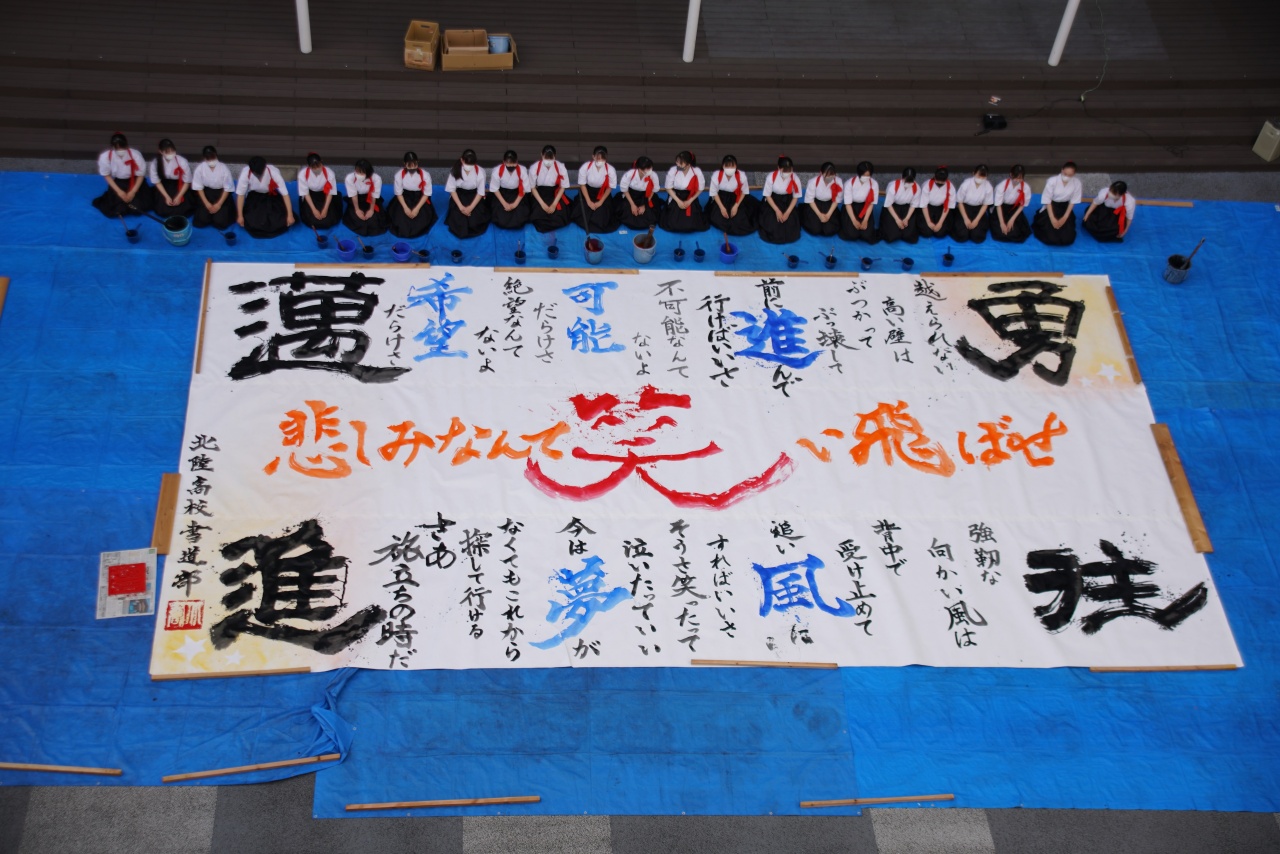 勇
越えられない
高い壁は
ぶつかって
ぶっ壊して
前に進んで
行けばいいさ
不可能なんて
ないよ
可能
だらけさ
絶望なんて
ないよ
希望
だらけさ
邁
悲しみなんて笑い飛ばせ
往
強靱な
向かい風は
背中で
受け止めて
追い風に
すればいいさ
そうさ笑ったって
泣いたっていい
今は夢が
なくてもこれから
探して行ける
さあ
旅立ちの時だ
進
北陸高校書道部